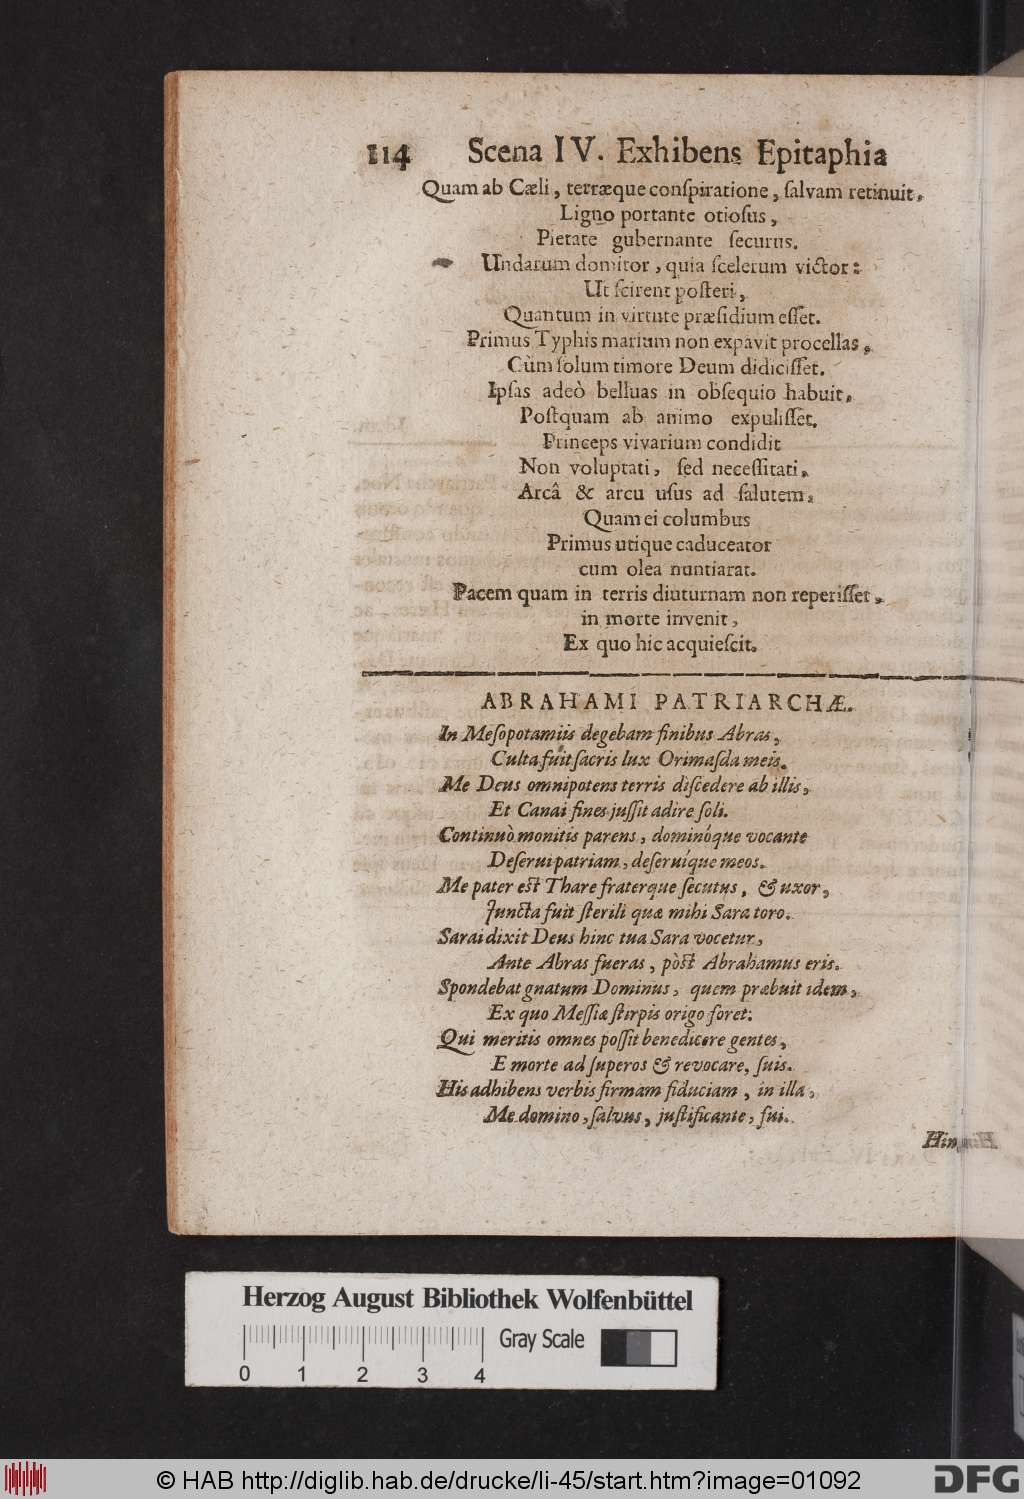 114 Scena IV. Exhibens Epitaphia
Quam ab Cæli, terræque conſpiratione, ſalvam retinuit,
Ligno portante otioſus,
Pietate gubernante ſecurus.
Undarum domitor, quia ſcelerum victor:
Ut ſcirent poſteri,
Quantum in virtute præſidium eſſet.
Primus Typhis marium non expavit procellas,
Cùm ſolum timore Deum didiciſſet.
Ipſas adeò belluas in obſequio habuit,
Poſtquam ab animo expuliſſet.
Princeps vivarium condidit
Non voluptati, ſed neceſſitati,
Arcâ & arcu uſus ad ſalutem,
Quam ei columbus
Primus utique caduceator
cum olea nuntiarat.
Pacem quam in terris diuturnam non reperiſſet,
in morte invenit,
Ex quo hic acquieſcit.
ABRAHAMI PATRIARCHÆ.
In Meſopotamiis degebam finibus Abras,
Culta fuit ſacris lux Orimaſda meis.
Me Deus omnipotens terris diſcedere ab illis,
Et Canai fines juſſit adire ſoli.
Continuò monitis parens, dominóque vocante
Deſerui patriam, deſeruíque meos.
Me pater eſt Thare fraterque ſecutus, & uxor,
Juncta fuit ſterili quæ mihi Sara toro.
Sarai dixit Deus hinc tua Sara vocetur,
Ante Abras fueras, pòſt Abrahamus eris.
Spondebat gnatum Dominus, quem præbuit idem,
Ex quo Meſſiæ ſtirpis origo foret:
Qui meritis omnes poſſit benedicere gentes,
E morte ad ſuperos & revocare, ſuis.
His adhibens verbis firmam fiduciam, in illa,
Me domino, ſalvus, juſtificante, fui.
Hin
Herzog August Bibliothek Wolfenbüttel
Gray Scale
0 1 2 3 4
© HAB http://diglib.hab.de/drucke/li-45/start.htm?image=01092
DFG